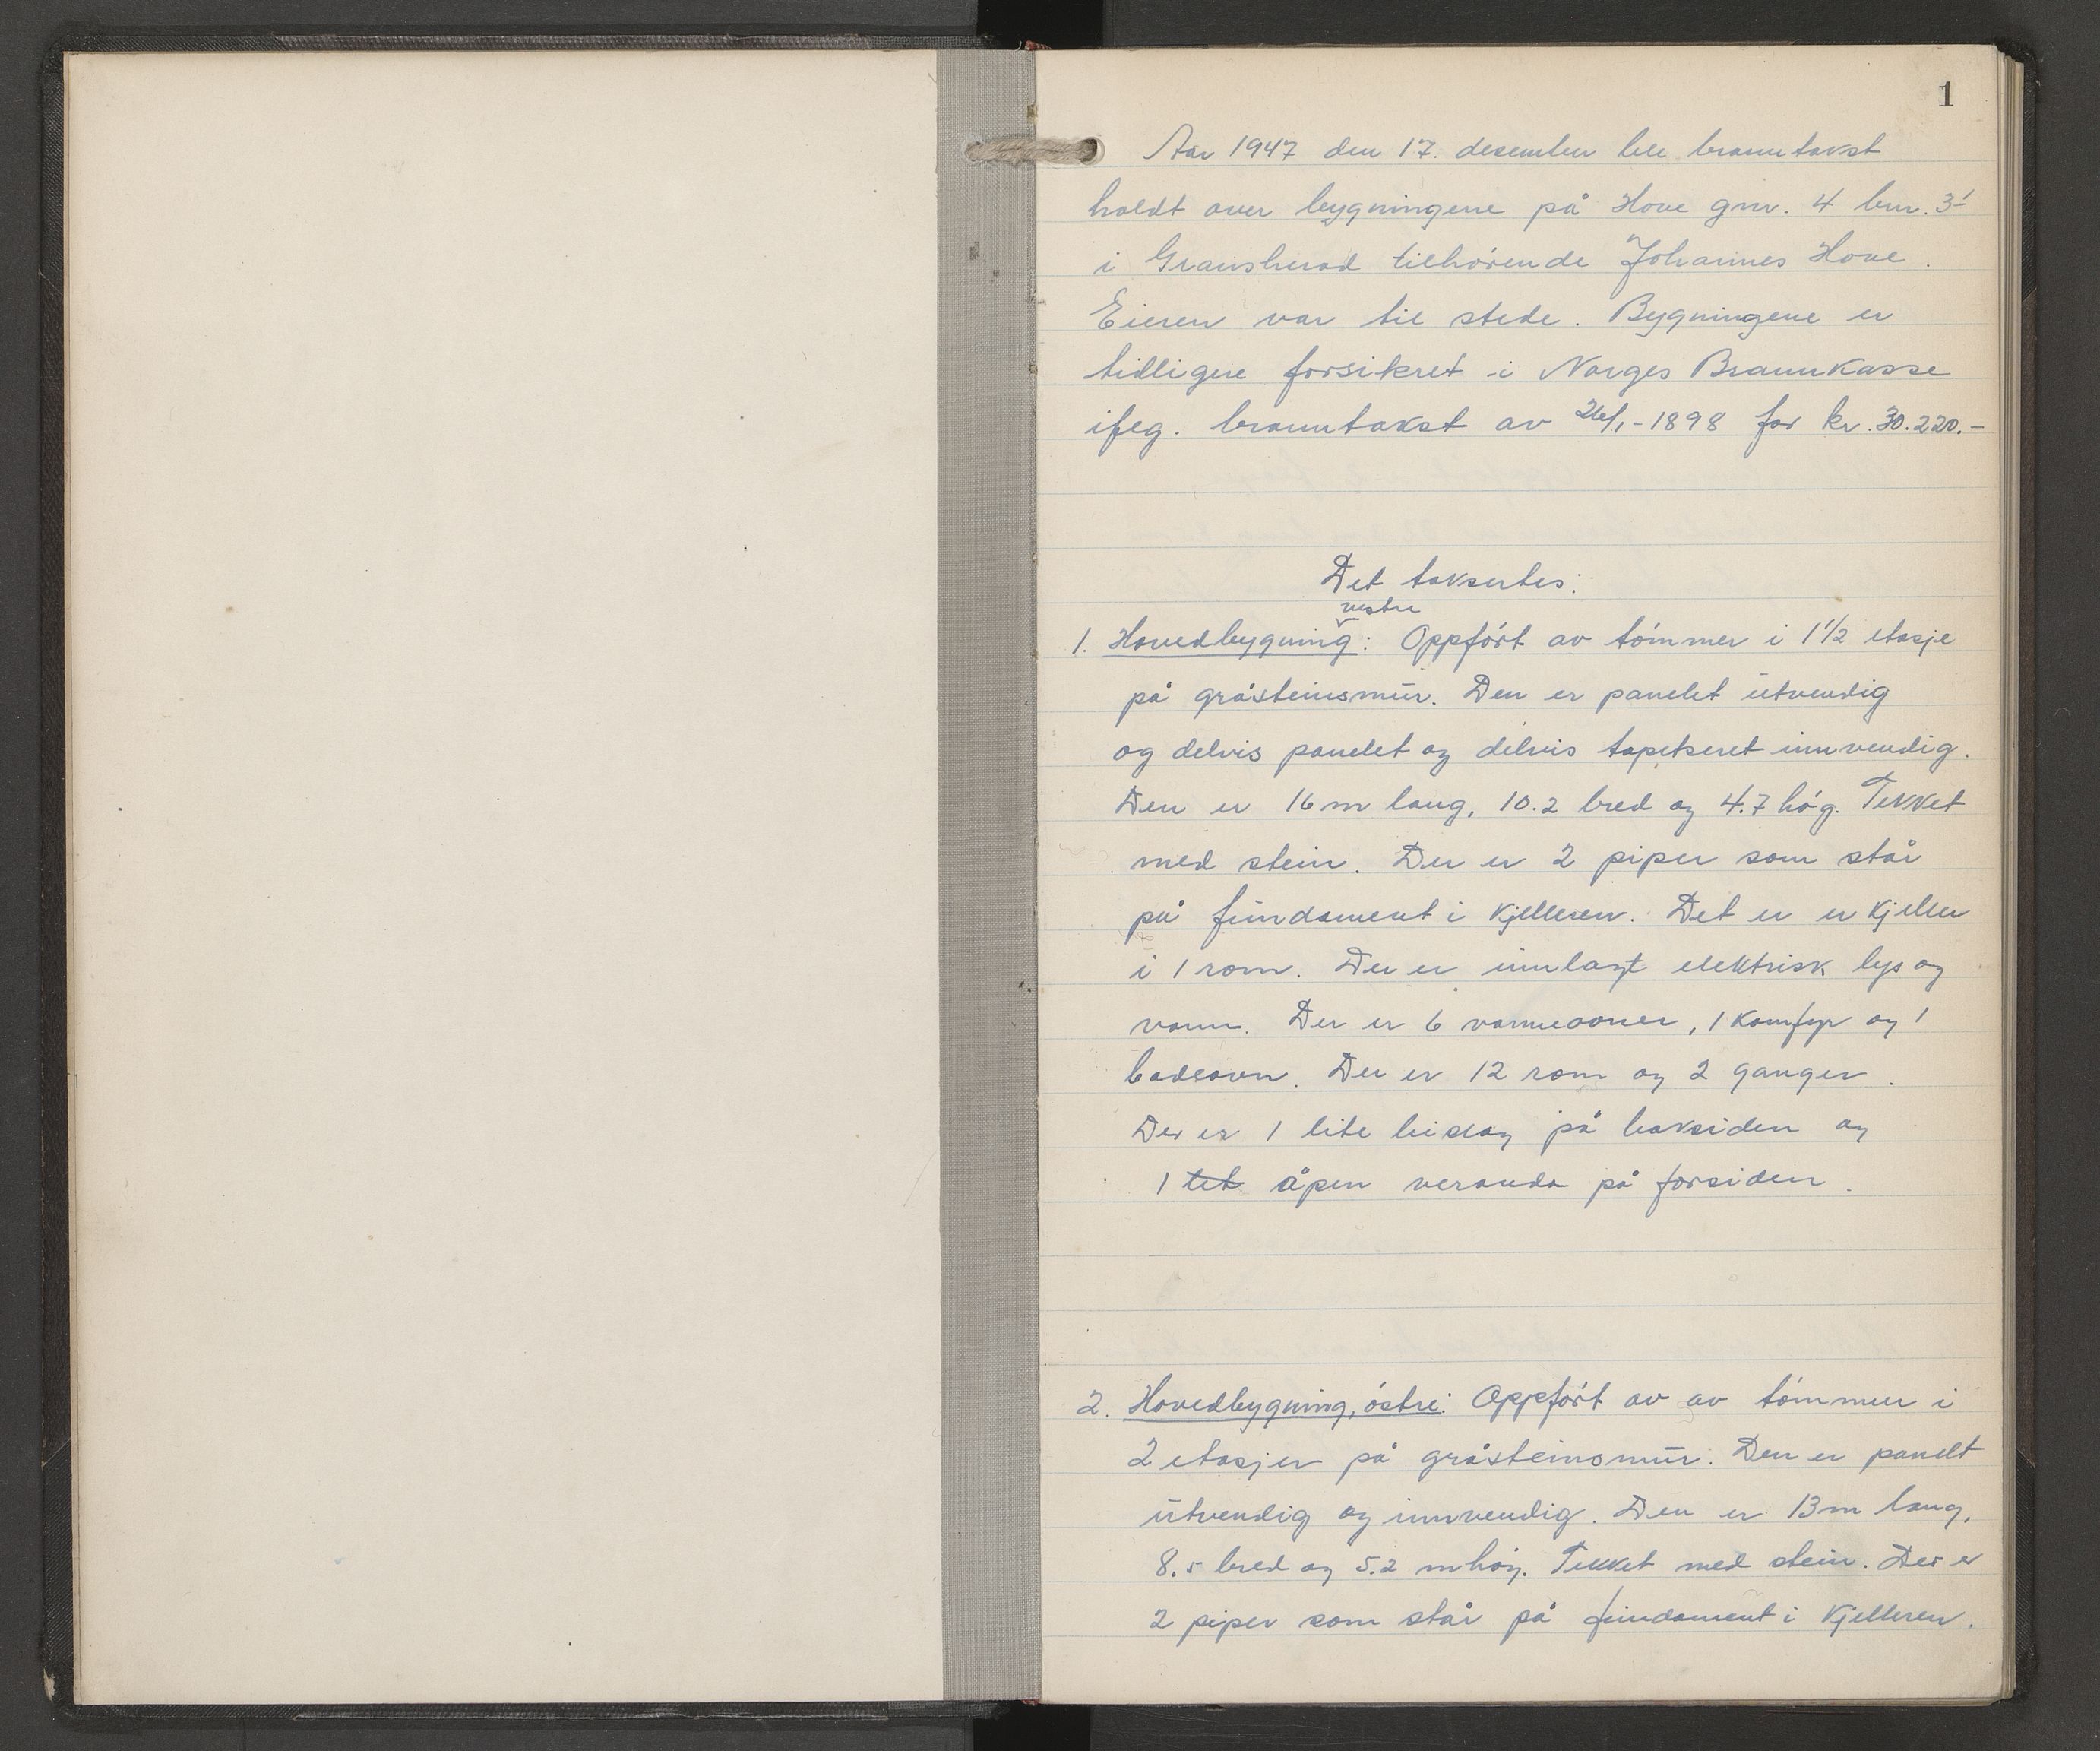 1
Aar 1947 den 17. desember ble branntakst
holdt over bygningene på Hove gnr. 4 bnr. 3
i Gransherad tilhörende Johannes Hove.
Eieren var til stede. Bygningene er
tidligere forsikret i Norges Brannkasse
iflg. branntakst av 26/1-1898 for kr. 30.220.-
Det takseres:
vestre
1. Hovedbygning: Oppfört av tömmer i 1 1/2 etasje
på gråsteinsmur. Den er panelet utvendig
og delvis panelet og delvis tapetseret innvendig.
Den er 16 m lang, 10.2 bred og 4.7 hög. Tekket
med stein. Der er 2 piper som står
på fundament i kjelleren. Det er er kjeller
i 1 rom. Der er innlagt elektrisk lys og
vann. Der er 6 varmeovner, 1 komfyr og 1
badeovn. Der er 12 rom og 2 ganger.
Der er 1 lite bislag på baksiden og
1 tet åpen veranda på forsiden.
2. Hovedbygning, östre: Oppfört av av tömmer i
2 etasjer på gråsteinsmur. Den er panelt
utvendig og innvendig. Den er 13 m lang,
8.5 bred og 5.2 m hög. Tekket med stein. Der er
2 piper som står på fundament i kjelleren.